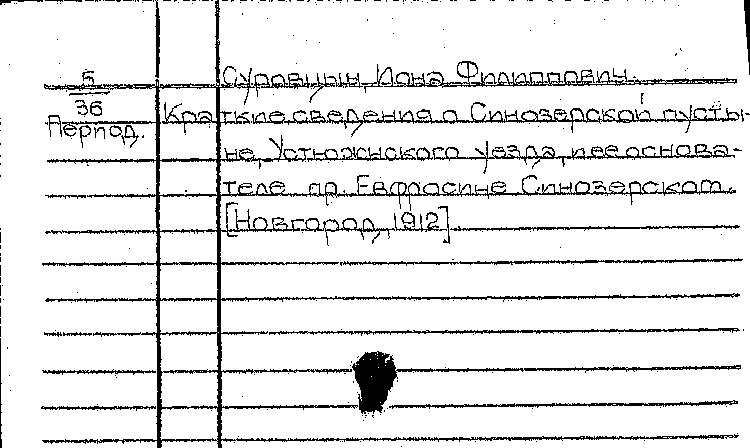 5
36
Период.
Суровцын, Иона Филиппович.
Краткие сведения о Синозерской пусты-
не, Устюжнского уезда, и ее основа-
теле пр. Евфросине Синозерском.
[Новгород, 1912].